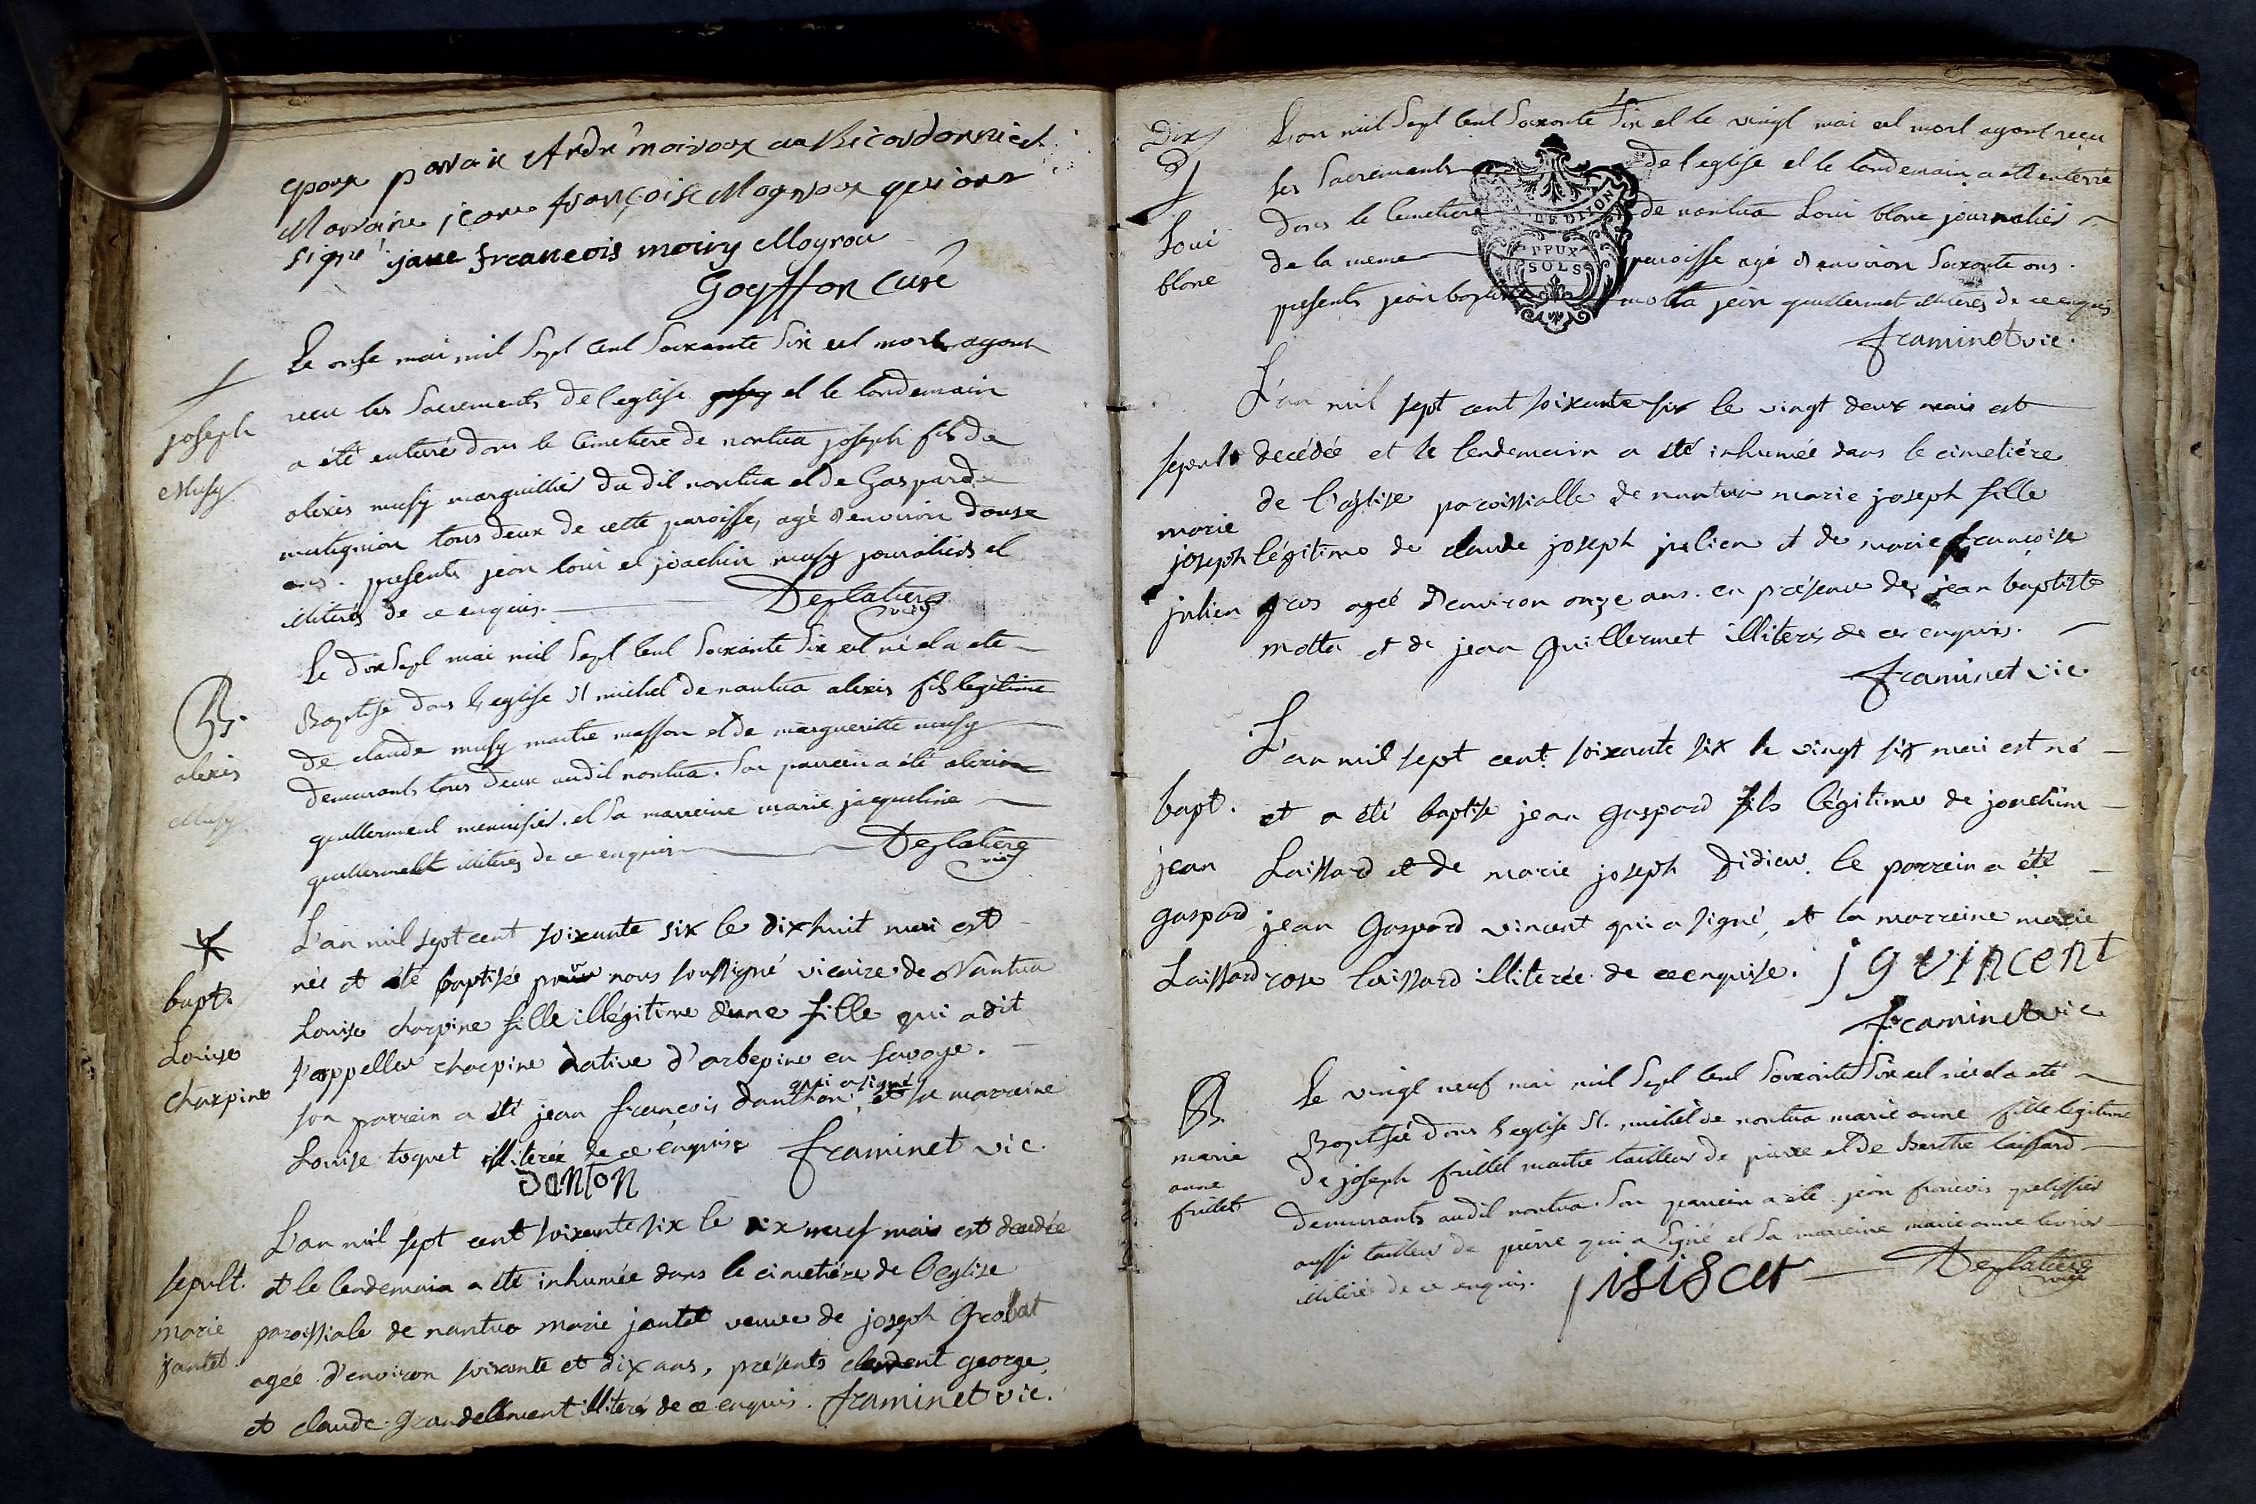 epoux parain Andre moiroux
Maraine jeane françoise Mognoux qui ons
signé jane franeois moiry Moyrou
Goyffon Curé
Le onse mai mil Sept Cent Soixante Six est mort ayant
recu les Sacrements de l'eglise et le landemain
joseph
a été enterré dans le Cimetiere de nantua joseph fils de
Musy
alexis musy marguillier du dit nantua et de Gasparde
matignion tous deux de cette paroisse, agé d'environ douse
ans. presents jean loui et joachin musy journaliers et
illiterés de ce enquis. Deslatiere
vic
Le dix Sept mai mil Sept Cent Soixante Six est né et a ete
B.
Baptise dans l'eglise st michel de nantua alexis fils legitime
alexis
de claude musy maitre masson et de margueritte musy
Musy
demeurants tous deux audit nantua. Son parrein a été alexis
guillermeut menuisier. et Sa marreine marie jacqueline
guillermet illiterés de ce enquis Deslatiere
vic
L'an mil sept cent soixante six le dix huit mai est
bapt.
née et été baptisée par nous soussigné vicaire de Nantua
Louise
Louise charpine fille illégitime d'une fille qui a dit
charpine
s'appeller charpine native d'arbepine en Savoye.
son parrein a été jean françois danthon qui a signé, et la marreine
Louise toquet illiterée de ce enquise framinet vic.
Danton
L'an mil sept cent soixante six le dix neuf mai est decedée
sepult.
et le lendemain a été inhumée dans le cimetiére de l'eglise
marie
paroissiale de nantua marie jantet veuve de joseph Grobat
jantet
agée d'environ soixante et dix ans, présents clement george
et claude grandclément illiterés de ce enquis. framinet vic.
Dix
L'an mil Sept Cent Soixante Six et le vingt mai est mort ayant reçu
les Sacrements de l'eglise et le landemain a été enterré
Loui
dans le Cimetiere de nantua Loui blanc journalier
blanc
de la meme paroisse agé d'environ Soixante ans.
presents jean baptiste motta jean guillermet illiterés de ce enquis
framinet vic.
GEN. DE DIJON
DEUX
SOLS
L'an mil sept cent soixante six le vingt deux mai est
sepult
decédée et le lendemain a été inhumée dans le cimetiére
de l'église paroissialle de nantua marie joseph fille
marie
joseph
légitime de claude joseph julien et de marie françoise
julien
gros agée d'environ onze ans. en présence de jean baptiste
motta et de jean Guillermet illiterés de ce enquis.
framinet vic.
L'an mil sept cent soixante six le vingt six mai est né
bapt.
et a été baptisé jean gaspard fils légitime de joachim
jean
Laissard et de marie joseph Didier. le parrein a été
gaspard
jean Gaspard vincent qui a signé, et la marreine marie
Laissard
rose laissard illiterée de ce enquise. jgvincent
framinet vic
Le vingt neuf mai mil Sept Cent Soixante Six est née et a été
B.
Baptisée dans l'eglise St. michel de nantua marie anne fille legitime
marie
de joseph frillet maitre tailleur de pierre et de Berthe laissard
anne
frillet
demeurants audit nantua. Son parrein a été jean francois pelissier
aussi tailleur de pierre qui a Signé et Sa marreine marie anne
illiterée de ce enquis. Deslatiere
vic